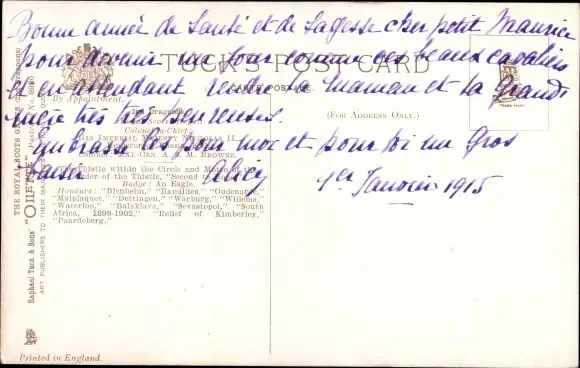 Bonne année de Santé et de Sagesse cher petit Maurice
pour devenir un jour comme ces beaux cavaliers
et en attendant rendre Maman et ta Grand
mère très très heureuses.
Embrasse les pour moi et pour toi un gros
baiser
1er Janvier 1915
TUCK'S POST CARD
CARTE POSTALE
By Appointment.
(FOR ADDRESS ONLY.)
TRADE MARK
2nd Dragoons
Colonel-in-Chief:
HIS IMPERIAL MAJESTY NICHOLAS II.
COLONEL: MAJ.-GEN. A. S. M. BROWNE.
The Thistle within the Circle and Motto of the
Order of the Thistle, "Second to None."
Badge: An Eagle.
Honours: "Blenheim," "Ramillies," "Oudenarde,"
"Malplaquet," "Dettingen," "Warburg," "Willems,"
"Waterloo," "Balaklava," "Sevastopol," "South
Africa, 1899-1902," "Relief of Kimberley,"
"Paardeberg."
THE ROYAL SCOTS GREYS (2ND DRAGOONS)
Raphael Tuck & Sons' "OILETTE"
ART PUBLISHERS TO THEIR MAJESTIES
Printed in England.